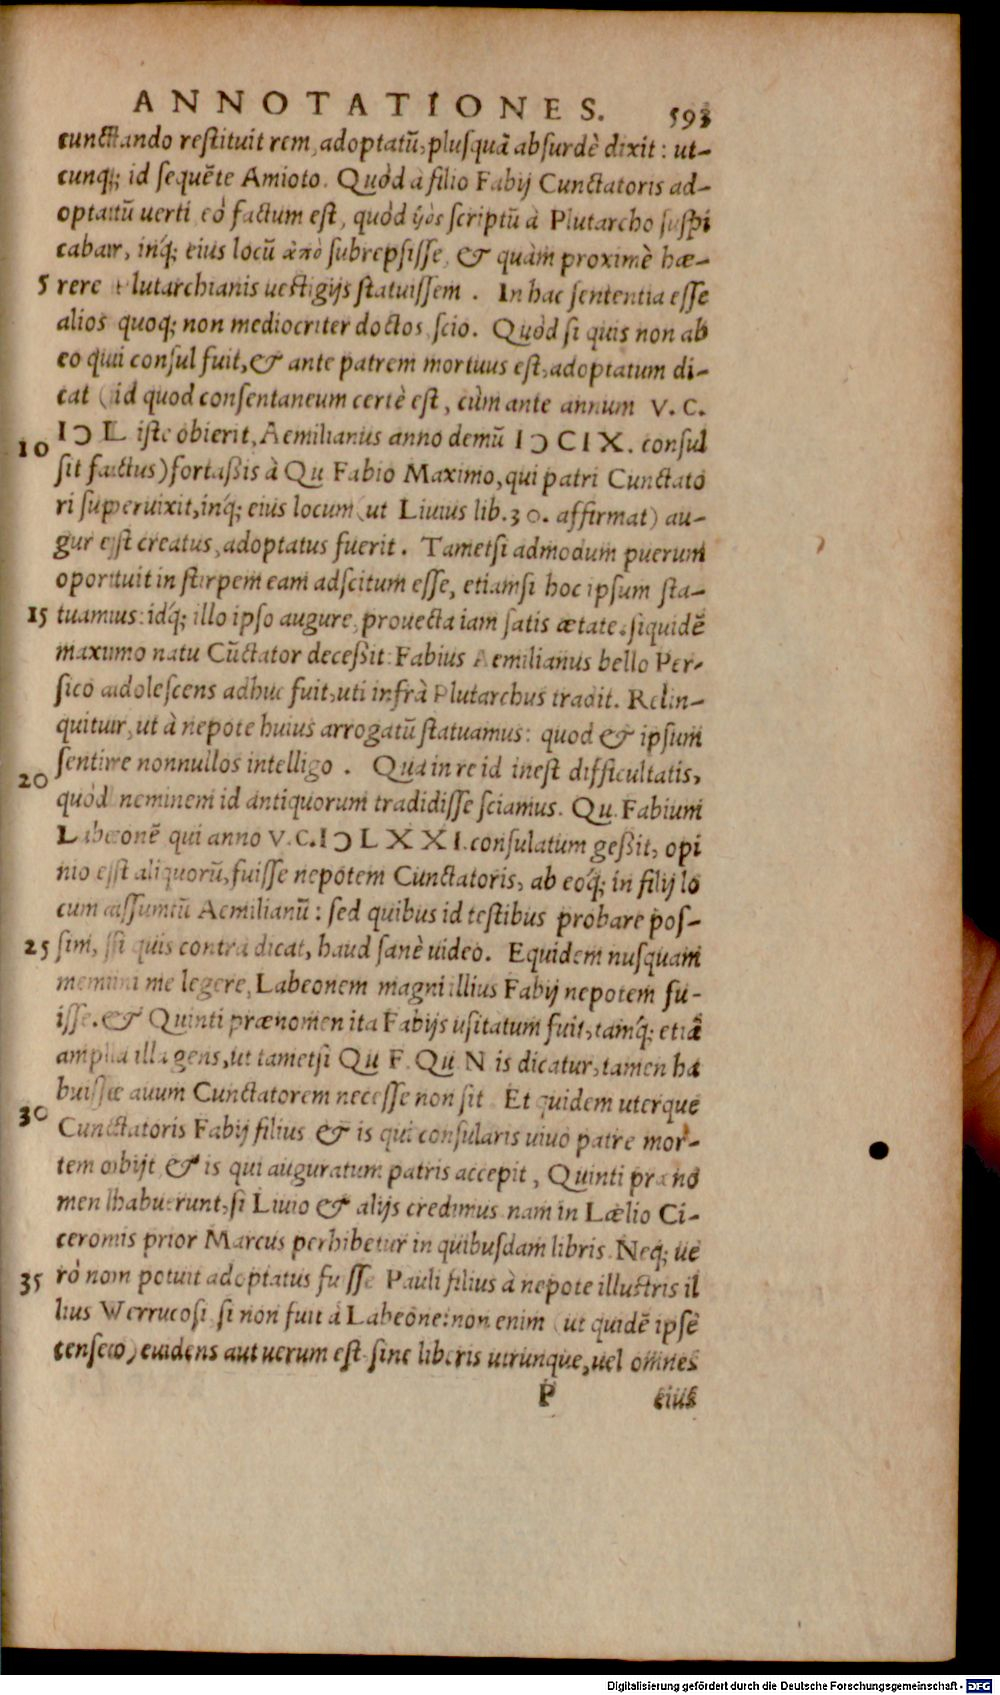 ANNOTATIONES. 593
cunctando restituit rem, adoptatū, plusquā absurdè dixit: ut-
cunq; id sequēte Amioto. Quòd à filio Fabij Cunctatoris ad-
optatū uerti eò factum est, quòd ὑὸς scriptū à Plutarcho suspi
cabar, inq́; eius locū ἀπὸ subrepsisse, & quàm proximè hæ-
5 rere Plutarchianis uestigijs statuissem. In hac sententia esse
alios quoq; non mediocriter doctos scio. Quòd si quis non ab
eo qui consul fuit, & ante patrem mortuus est, adoptatum di-
cat (id quod consentaneum certè est, cùm ante annum V. C.
IↃL iste obierit, Aemilianus anno demū IↃCIX. consul
10 sit factus) fortaßis à Qu Fabio Maximo, qui patri Cunctato
ri superuixit, inq́; eius locum (ut Liuius lib. 30. affirmat) au-
gur est creatus, adoptatus fuerit. Tametsi admodum puerum
oportuit in stirpem eam adscitum esse, etiamsi hoc ipsum sta-
15 tuamus: idq́; illo ipso augure, prouecta iam satis ætate. siquidē
maxumo natu Cūctator deceßit: Fabius Aemilianus bello Per-
sico adolescens adhuc fuit, uti infrà Plutarchus tradit. Relin-
quitur, ut à nepote huius arrogatū statuamus: quod & ipsum
sentire nonnullos intelligo. Qua in re id inest difficultatis,
20 quòd neminem id antiquorum tradidisse sciamus. Qu. Fabium
Labeonē qui anno V. C. IↃLXXI. consulatum geßit, opi
nio est aliquorū, fuisse nepotem Cunctatoris, ab eoq́; in filij lo
cum assumtū Aemilianū: sed quibus id testibus probare pos-
25 sim, si quis contra dicat, haud sanè uideo. Equidem nusquam
memini me legere, Labeonem magni illius Fabij nepotem fu-
isse. & Quinti prænomen ita Fabijs usitatum fuit, tamq́; etiā
ampla illa gens, ut tametsi Qu F. Qu. N is dicatur, tamen ha
buisse auum Cunctatorem necesse non sit. Et quidem uterque
30 Cunctatoris Fabij filius & is qui consularis uiuo patre mor-
tem obijt, & is qui auguratum patris accepit, Quinti præno
men habuerunt, si Liuio & alijs credimus. nam in Lælio Ci-
ceronis prior Marcus perhibetur in quibusdam libris. Neq; ue
35 rò nom potuit adoptatus fuisse Pauli filius à nepote illustris il
lius Verrucosi, si non fuit à Labeone: non enim (ut quidē ipsē
censeo) euidens aut uerum est sine liberis utrunque, uel omnes
P eius
Digitalisierung gefördert durch die Deutsche Forschungsgemeinschaft - DFG